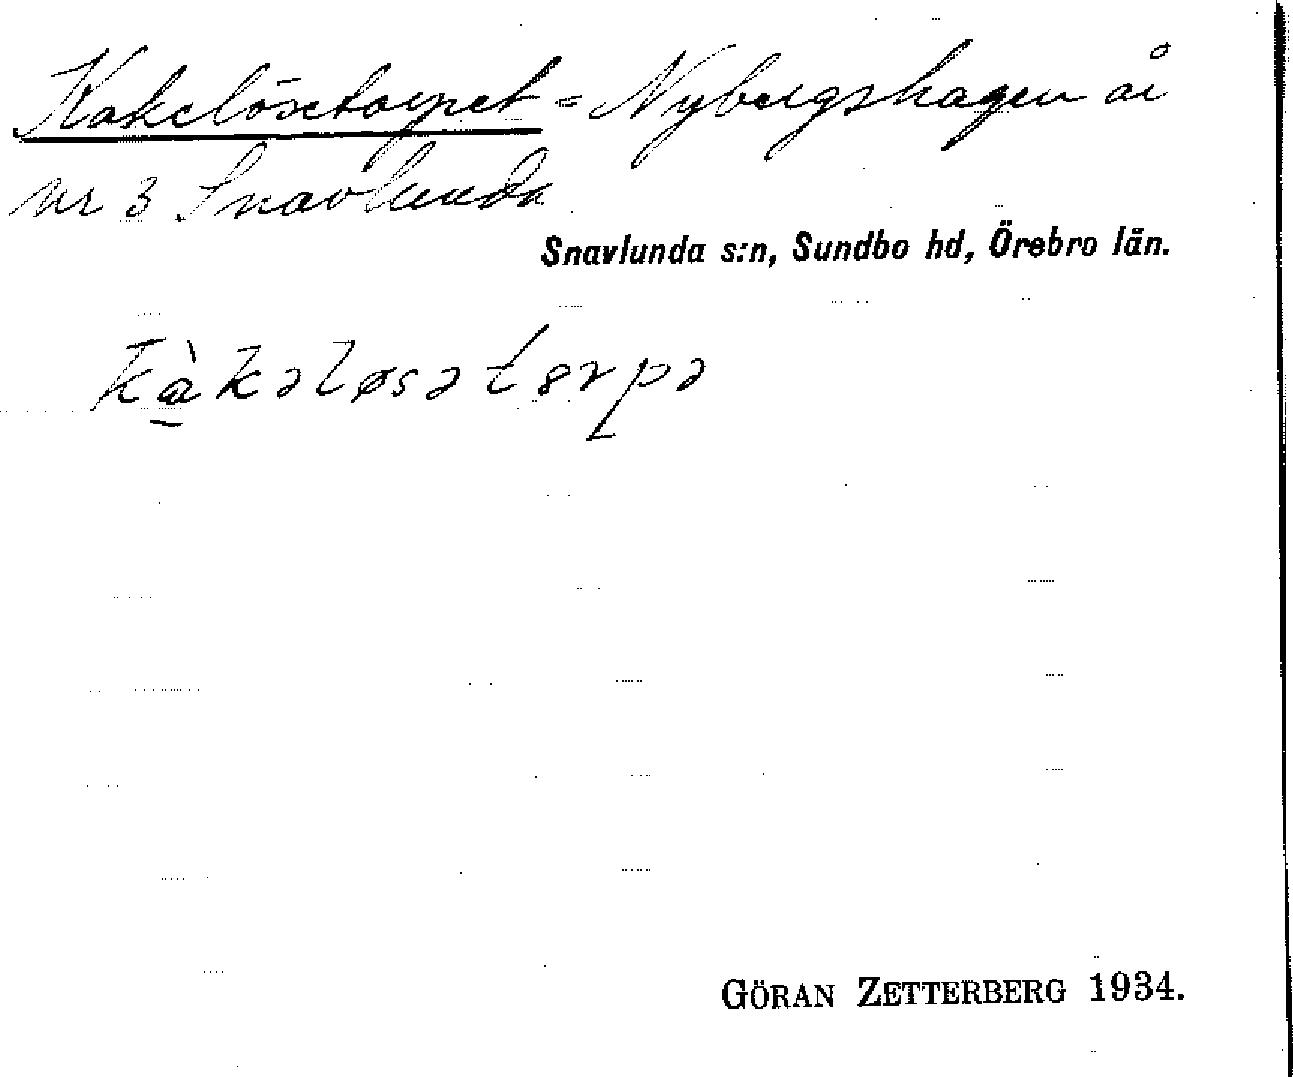 Kakelösetorpet = Nybergshagen å
nr 3 Snavlunda
Snavlunda s:n, Sundbo hd, Örebro län.
kàkəløsətɵrpə
GÖRAN ZETTERBERG 1934.